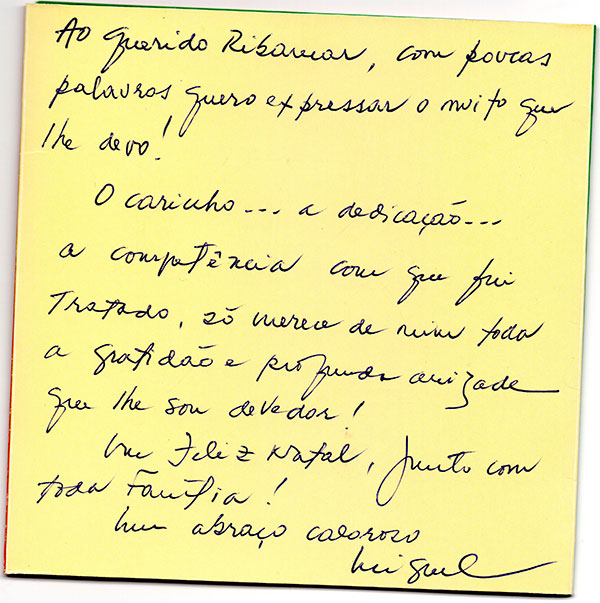 Ao querido Ribamar, com poucas
palavras quero expressar o muito que
lhe devo!
O carinho... a dedicação...
a competência com que fui
Tratado, só merece de mim toda
a gratidão e profunda amizade
que lhe sou devedor!
Um Feliz Natal, junto com
toda Família!
Um abraço caloroso
Miguel